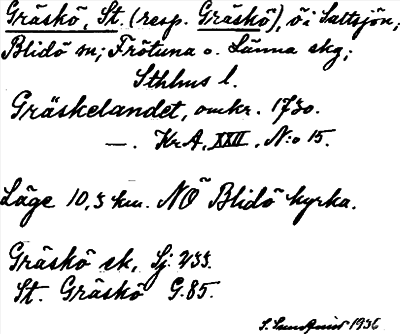 Gräskö, St. (resp. Gräskö), ö i Saltsjön;
Blidö sn; Frötuna o. Länna skg;
Sthlms l.
Gräskelandet, omkr. 1730.
—. KrA, XXII, N:o 15.
Läge 10,5 km. NÖ Blidö kyrka.
Gräskö ek, Sj. 233.
St. Gräskö G.85.
1936